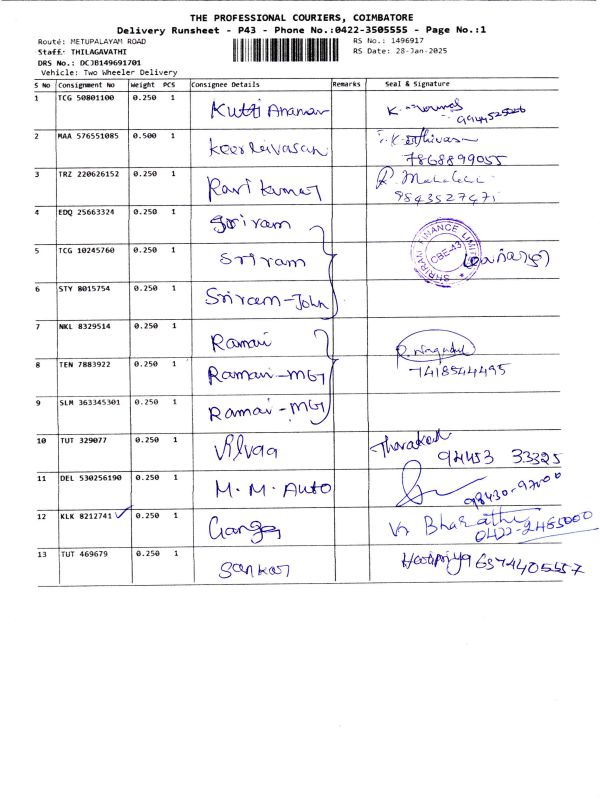 THE PROFESSIONAL COURIERS, COIMBATORE
Delivery Runsheet - P43 - Phone No.:0422-3505555 - Page No.:1
Route: METUPALAYAM ROAD RS No.: 1496917
Staff: THILAGAVATHI RS Date: 28-Jan-2025
DRS No.: DCJB149691701
Vehicle: Two Wheeler Delivery
S No Consignment No Weight PCS Consignee Details Remarks Seal & Signature
1 TCG 50801100 0.250 1 Kutti
2 MAA 576551085 0.500 1 Keerthivasan
7868899055
3 TRZ 220626152 0.250 1 Ravi kumar
9843527471
4 EDQ 25663324 0.250 1 Sriram
SHRIRAM FINANCE LIMITED
CBE-43
5 TCG 10245760 0.250 1 Sriram
6 STY 8015754 0.250 1 Sriram-John
7 NKL 8329514 0.250 1 Ramani
8 TEN 7883922 0.250 1 Ramani-MGT 7418544495
9 SLM 363345301 0.250 1 Ramani-MGT
10 TUT 329077 0.250 1 Vilvaa
94453 33325
11 DEL 530256190 0.250 1 M.M. Auto 98430-97000
12 KLK 8212741 0.250 1 Ganga Bharathi
0422-2465000
13 TUT 469679 0.250 1 Sankar Haripriya 6374405557